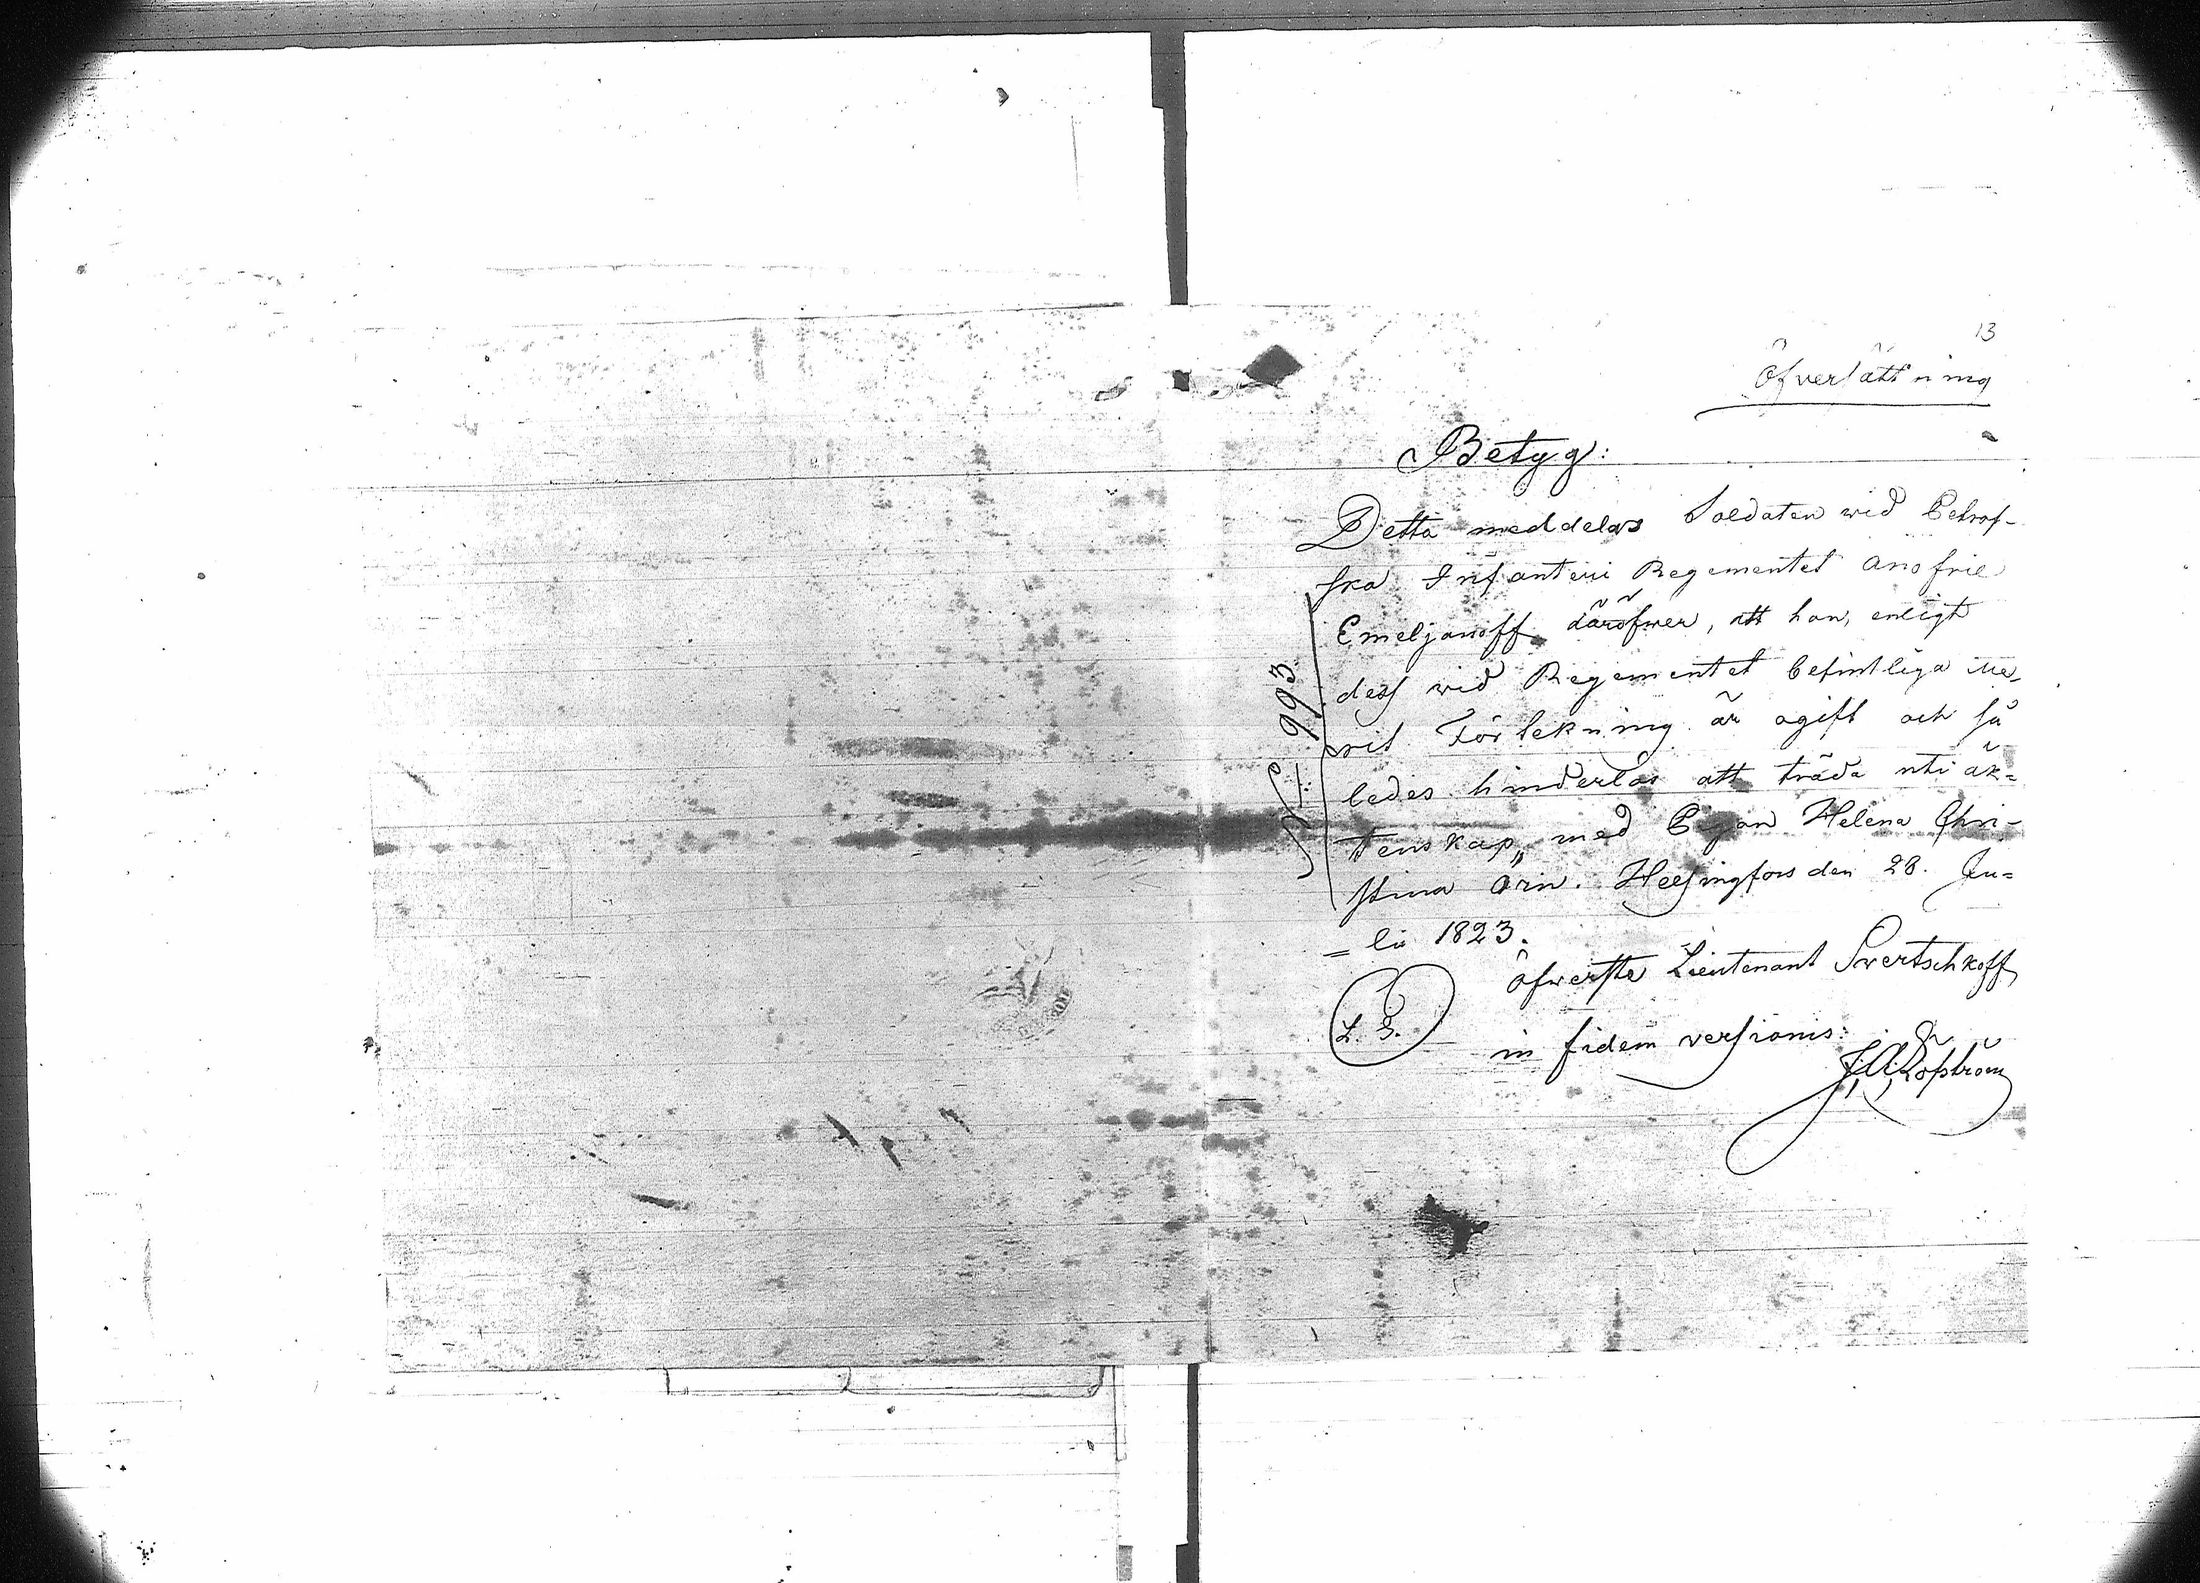 13
Öfversättning
Betyg:
Detta meddelas Soldaten wid Petrof-
ska Infanteri Regementet Anofrie
Emeljanoff, däröfwer, att han, enligt
dess wid Regementet befintliga Me-
rit Förtekning är ogift och så
ledes hinderlös att träda uti äk=
tenskap, med Pigan Helena Chri-
stina Orin. Helsingfors den 28. Ju=
= lii 1823.
Öfwerste Lieutenant Swertschkoff
L. S.
in fidem versionis:
№ 993